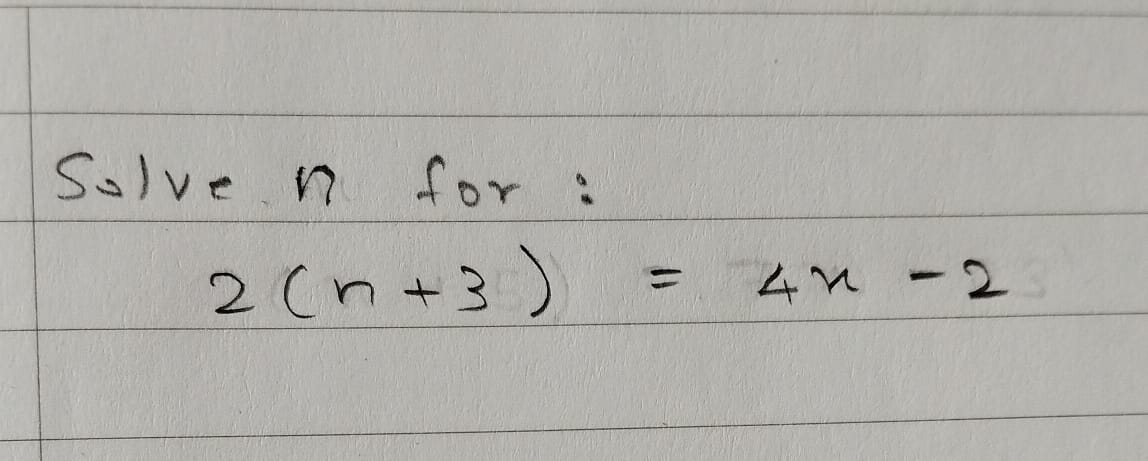 Solve n for :
2(n+3) = 4x -2